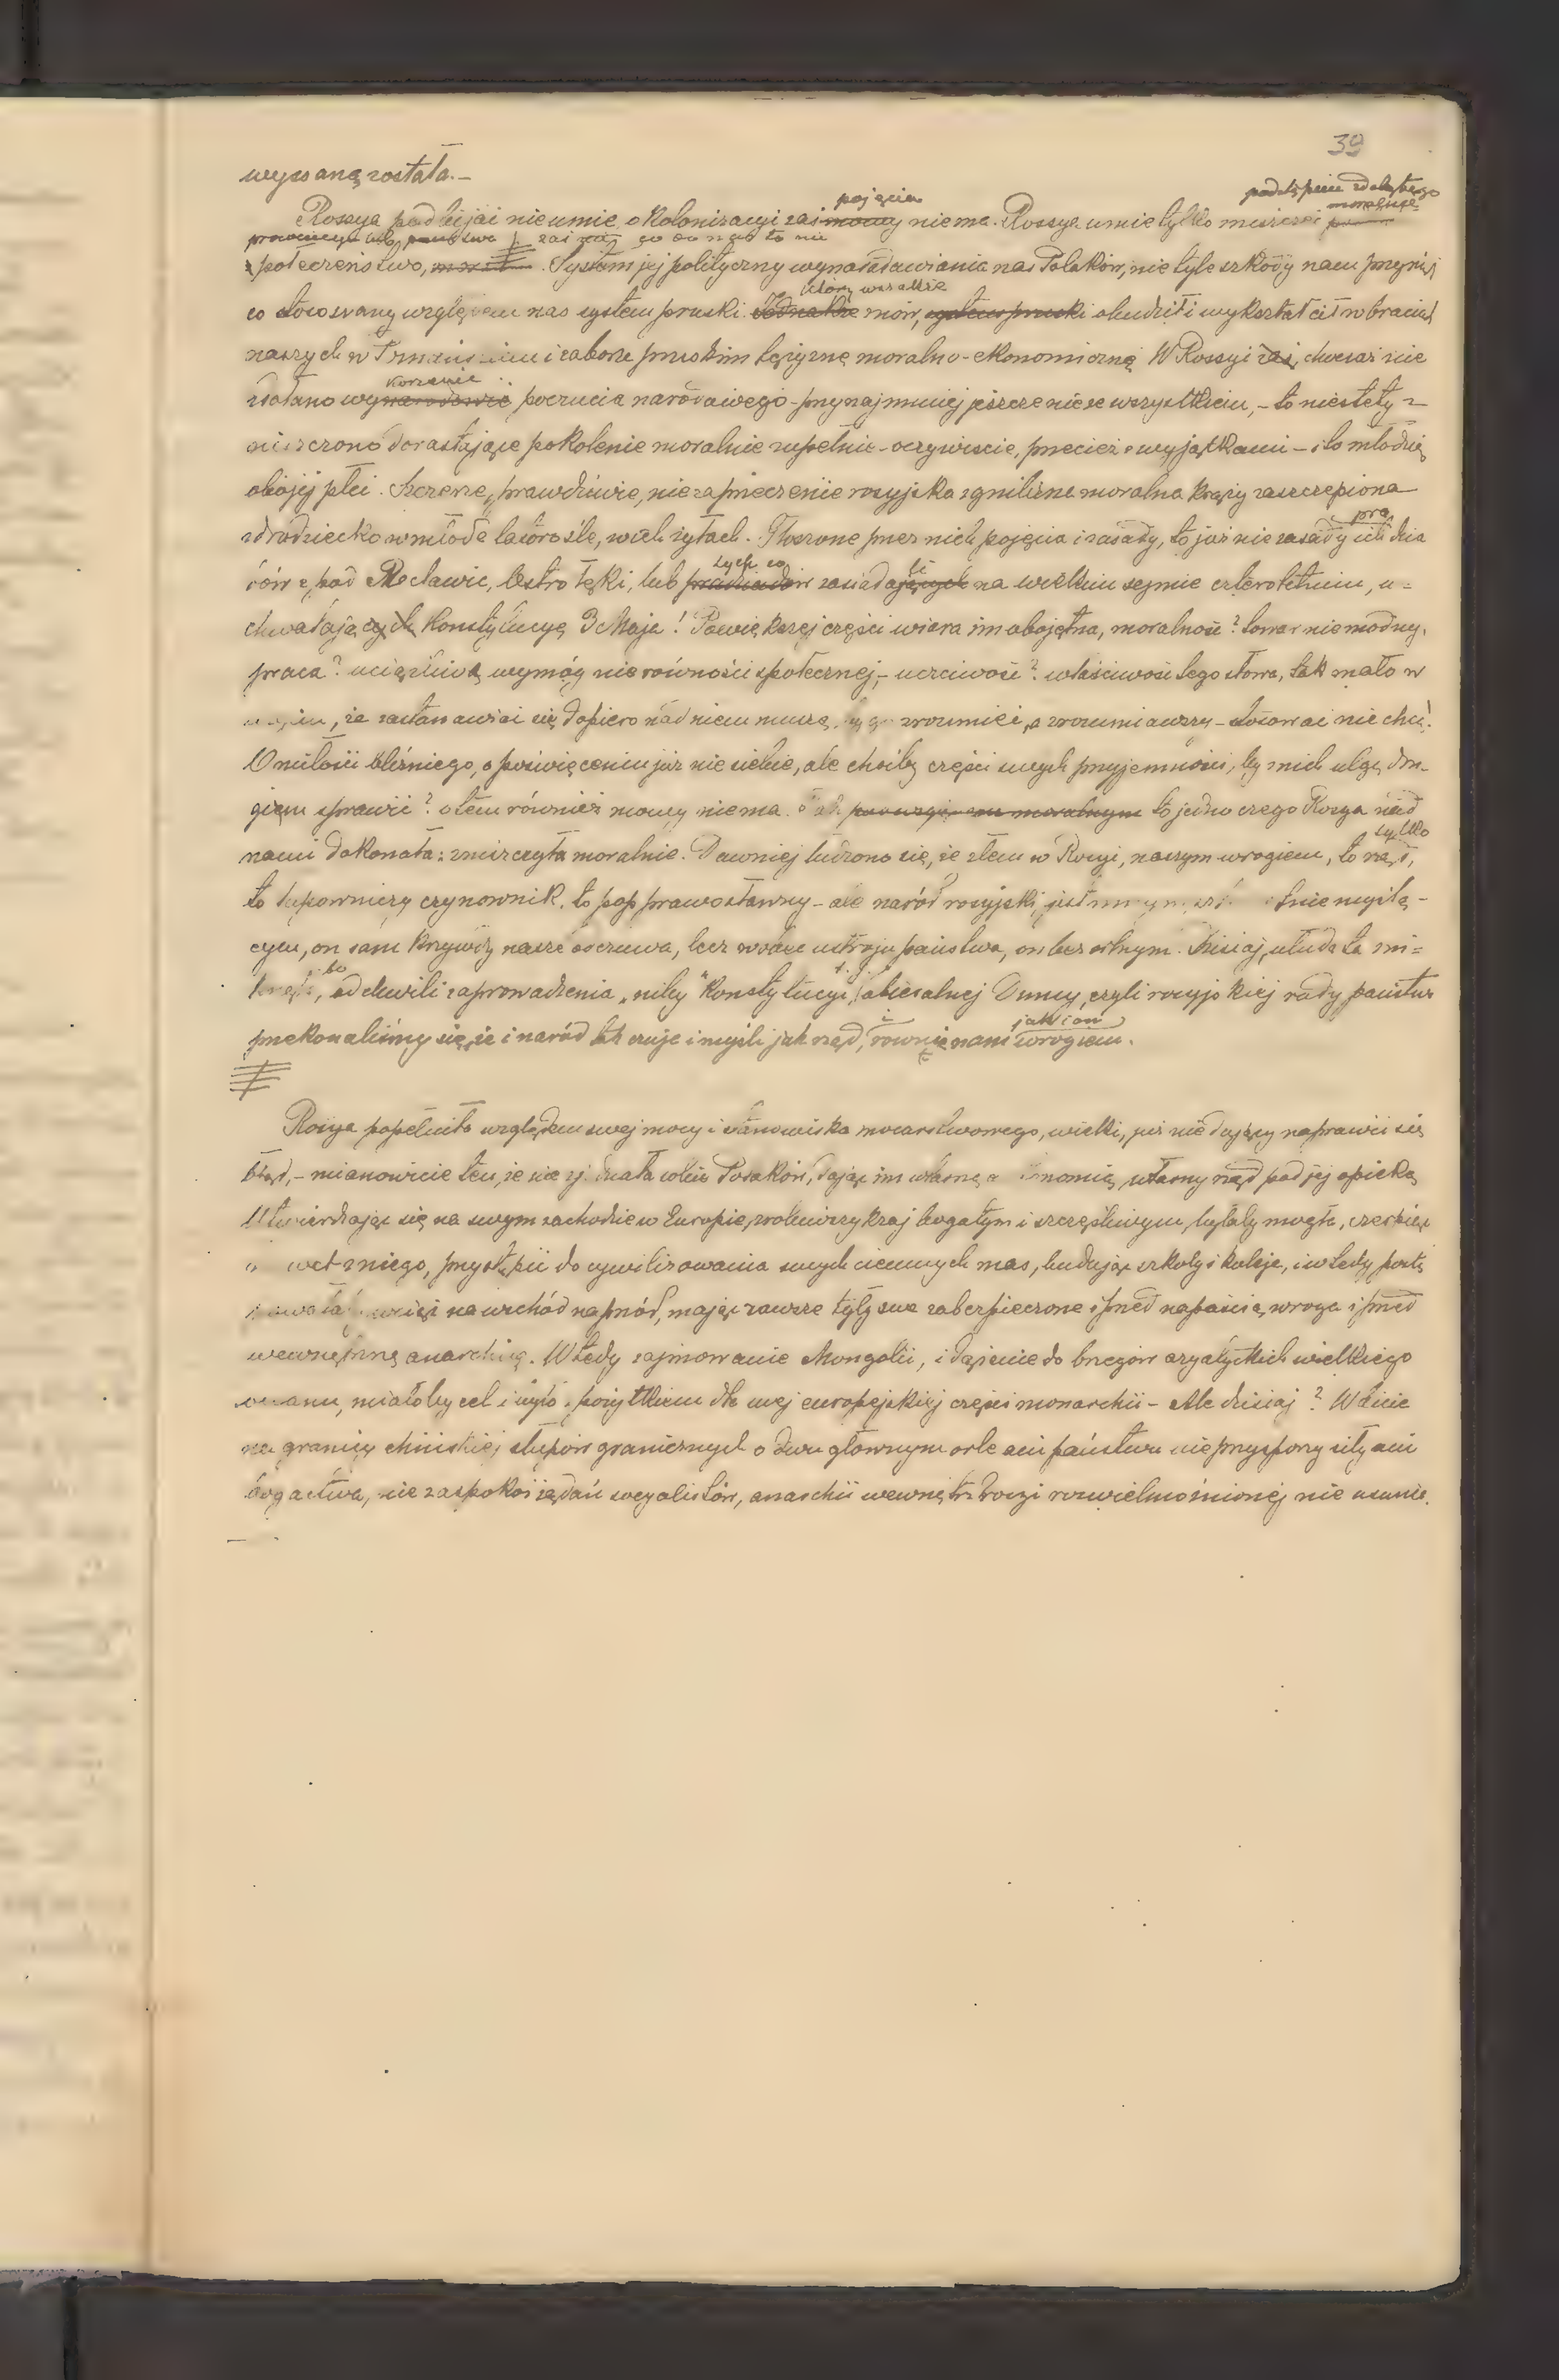 39
wyssaną została. –
podstępnie zdobytego
pojęcia
moralnie
Rossya podbijać nie umie, o kolonizacyi zaś mowy niema. Rossya umie tylko niszczeć
prowincye lub państwa zaś co to nie
społeczeństwo, . System jej polityczny wynaradawiania nas Polaków, nie tyle szkody nam przyniósł
który wszakże
co stosowany względem nas system pruski. Jednakże mów, system pruski obudził i wykształcił w braciach
naszych w i zaborze pruskim tężyznę moralno-ekonomiczną. W Rossyi zaś, chociaż nie
korzenić
zdołano wynarodowić poczucia narodowego – przynajmniej jeszcze nie ze wszystkiem, – to niestety z
niszczono dorastające pokolenie moralnie zupełnie – oczywiście, przecież z wyjątkami – i to młodzież
obojej płci. Szczerze, prawdziwie, niezaprzeczenie rosyjska zgnilizna moralna krąży zaszczepiona
pra
zdradziecko w młode latorośle, w ich żyłach. Głoszone przez nich pojęcia i zasady, to już nie zasady ich dzia
tych co li
dów z pod Racławic, Ostrołęki, lub pradziadów zasiadających na wielkim sejmie czteroletnim, u=
chwalających Konstytucyę 3 Maja! Po większej części wiara im obojętna, moralność? towar niemodny,
praca? uciążliwy wymóg nierówności społecznej, – uczciwość? właściwość tego słowa, tak mało w
, że zastanawiać się dopiero nad niem muszą, by go zrozumieć, a zrozumiawszy – stosować nie chcą!
O miłości bliźniego, o poświęceniu już nie siebie, ale choćby części swych przyjemności, by niemi ulgę dru-
giem sprawić? o tem również mowy niema. moralnym to jedno czego Rosya nad
tylko
nami dokonała: zniszczyła moralnie. Dawniej łudzono się, że złem w Rosyi, naszym wrogiem, to rząd,
to łapowniczy czynownik, to pop prawosławny – ale naród rosyjski, jest myślą-
cym, on sam krzywdy nasze odczuwa, lecz wobec ustroju państwa, on bezsilnym. Dzisiaj, ułuda ta zni=
bo t. j.
knęła, od chwili zaprowadzenia „niby" Konstytucyi, obiecalnej Dumy, czyli rosyjskiej rady państwa
i jak i on
przekonaliśmy się, że i naród tak czuje i myśli jak rząd, równie nam wrogiem.

Rosya popełniła względem swej mocy i stanowiska mocarstwowego, wielki, już nie dający naprawić się
błąd, – mianowicie tem, że nie zjednała sobie Polaków, dając im własną autonomią, własny rząd pod jej opieką
Utwierdzając się na swym zachodzie w Europie, zrobiwszy kraj bogatym i szczęśliwym, byłaby mogła, czerpiąc
nawet z niego, przystąpić do cywilizowania swych ciemnych mas, budując szkoły i koleje, i wtedy postę
na wschód naprzód, mając zawsze tyły swe zabezpieczone i przed napaścią wroga i przed
wewnętrzną anarchią. Wtedy zajmowanie Mongolii, i dążenie do brzegów azyatyckich wielkiego
oceanu, miałoby cel i było z pożytkiem dla swej europejskiej części monarchii – Ale dzisiaj? Wbicie
na granicy chińskiej słupów granicznych o dwugłownym orle ani państwu nie przysporzy siły ani
bogactwa, nie zaspokoi żądań socyalistów, anarchii wewnątrz Rosyi rozwielmożnionej nie usunie.